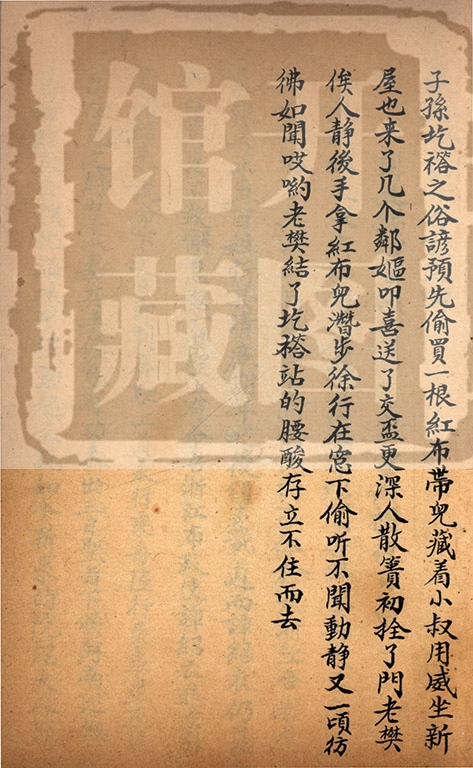 子孫圪𧝬之俗諺預先偷買一根紅布帶兒藏着小叔用威坐新
屋也来了几个鄰嫗叩喜送了交盃更深人散簣初拴了門老樊
俟人靜後手拿紅布兜潛步徐行在窓下偷听不聞動静又一頃彷
彿如聞哎喲老樊結了圪𧝬站的腰酸存立不住而去